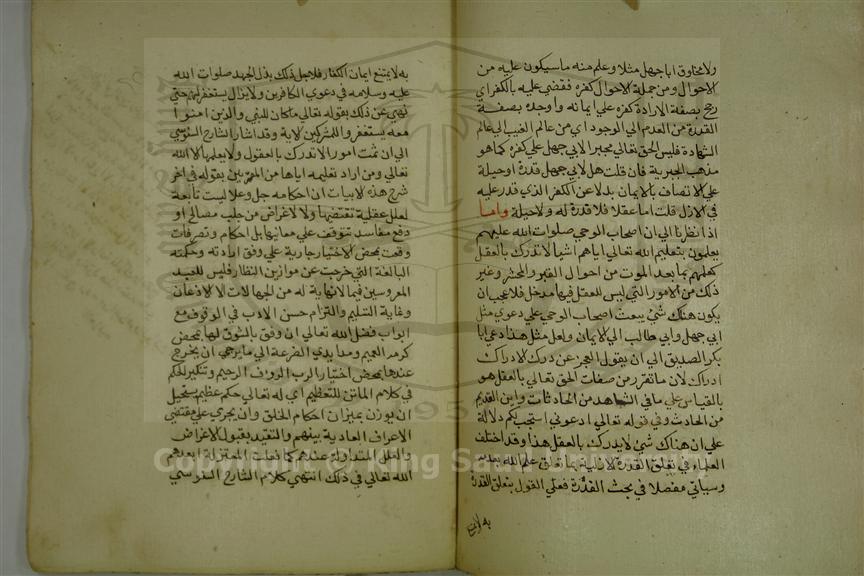 ولا مخلوق اباجهل مثلا وعلم منه ماسيكون عليه من
الاحوال ومن جملة الاحوال كفره فقضي عليه بالكفر اي
رجح بصفة الارادة كفره علي ايمانه واوجده بصفة
القدرة من العدم الي الوجود اي من عالم الغيب الي عالم
الشهادة فليس الحق تعالي مجبرا لابي جهل علي كفره كما هو
مذهب الجبرية فان قلت هل لابي جهل قدرة او حيلة
علي الاتصاف بالايمان بدلا عن الكفر الذي قدر عليه
في الازل قلت اما عقلا فلا قدرة له ولا حيلة واما
اذا نظرنا الي ان اصحاب الوحي صلوات الله عليهم
يعلمون بتعليم الله تعالي اياهم اشيا لا تدرك بالعقل
كعلمهم بما بعد الموت من احوال القبر والحشر وغير
ذلك من الامور التي ليس للعقل فيها مدخل فلا عجب ان
يكون هناك شئ يبعث اصحاب الوحي علي دعوي مثل
ابي جهل وابي طالب الي الايمان ولعل مثل هذا دعي ابا
بكر الصديق الي ان يقول العجز عن درك الادراك
ادراك لان ما تقرر من صفات الحق تعالي بالعقل هو
بالقياس علي ما في الشاهد من الحادثات واين القديم
من الحادث وفي قوله تعالي ادعوني استجب لكم دلالة
علي ان هناك شئ لا يدرك بالعقل هذا وقد اختلف
العلماء في تعلق القدرة الازلية بما تعلق علم الله بعدمه
وسياتي مفصلا في بحث القدرة فعلي القول بتعلق القدرة
به لا يمتنع
به لا يمتنع ايمان الكفار فلاجل ذلك بذل الجهد صلوات الله
عليه وسلامه في دعوي الكافرين ولا يزال يستغفر لهم حتي
نهي عن ذلك بقوله تعالي ما كان للنبي والذين امنوا
معه يستغفر واللمشركين لاية وقد اشار الشارح السنوسي
الي ان ثمت امورا لا تدرك بالعقول ولا يعلمها الا الله
تعالي ومن اراد تعليمه اياها من المقربين بقوله في اخر
شرح هذه الابيات ان احكامه جل وعلا ليست تابعة
لعلل عقلية تقتضيها ولا لاغراض من جلب مصالح او
دفع مفاسد تتوقف علي معانيها بل احكام وتصرفات
وقعت بمحض الاختيار جارية علي وفق ارادته وحكمته
البالغة التي خرجت عن موازين النظار فليس للعبد
فيما لانهاية له من الجهالات الا الاذعان
وغاية التسليم والتزام حسن الادب في الوقوف مع
ابواب فضل الله تعالي ان وفق بالشوق لها بمحض
كرمه العميم ومد ايدي الضرعة الي ما يرجي ان يخرج
عندها بمحض اختيار الرب الروف الرحيم وتنكير الحكم
في كلام الماتن للتعظيم اي له تعالي حكم عظيم يستحيل
ان يوزن بميزان احكام الخلق وان يجري علي مقتضي
الاعراف العادية بينهم والتقيد بقبول الاغراض
والعلل المتداولة عندهم كما فعلت المعتزلة ابعدهم
الله تعالي في ذلك انتهي كلام الشارح السنوسي
Copyright © King Saud University
1957